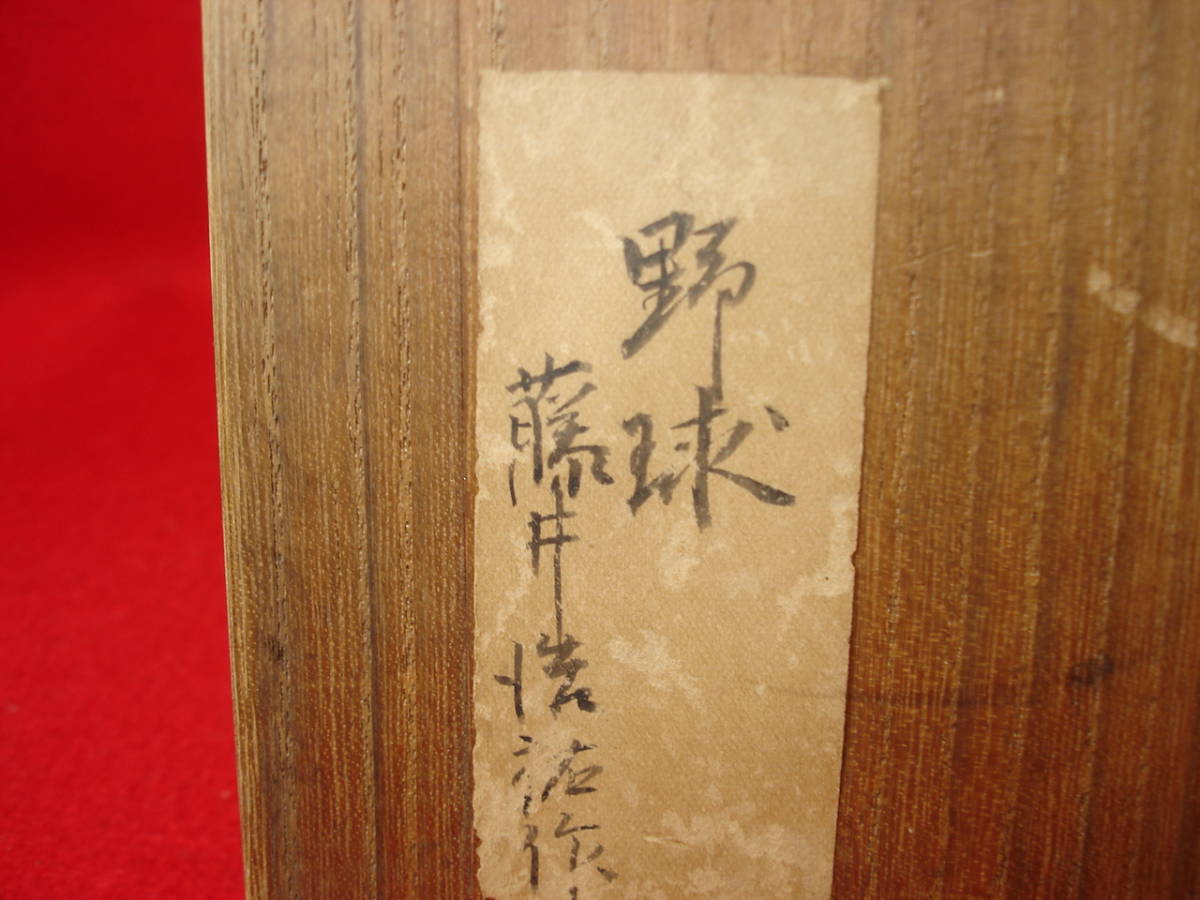 野球
藤井浩祐作